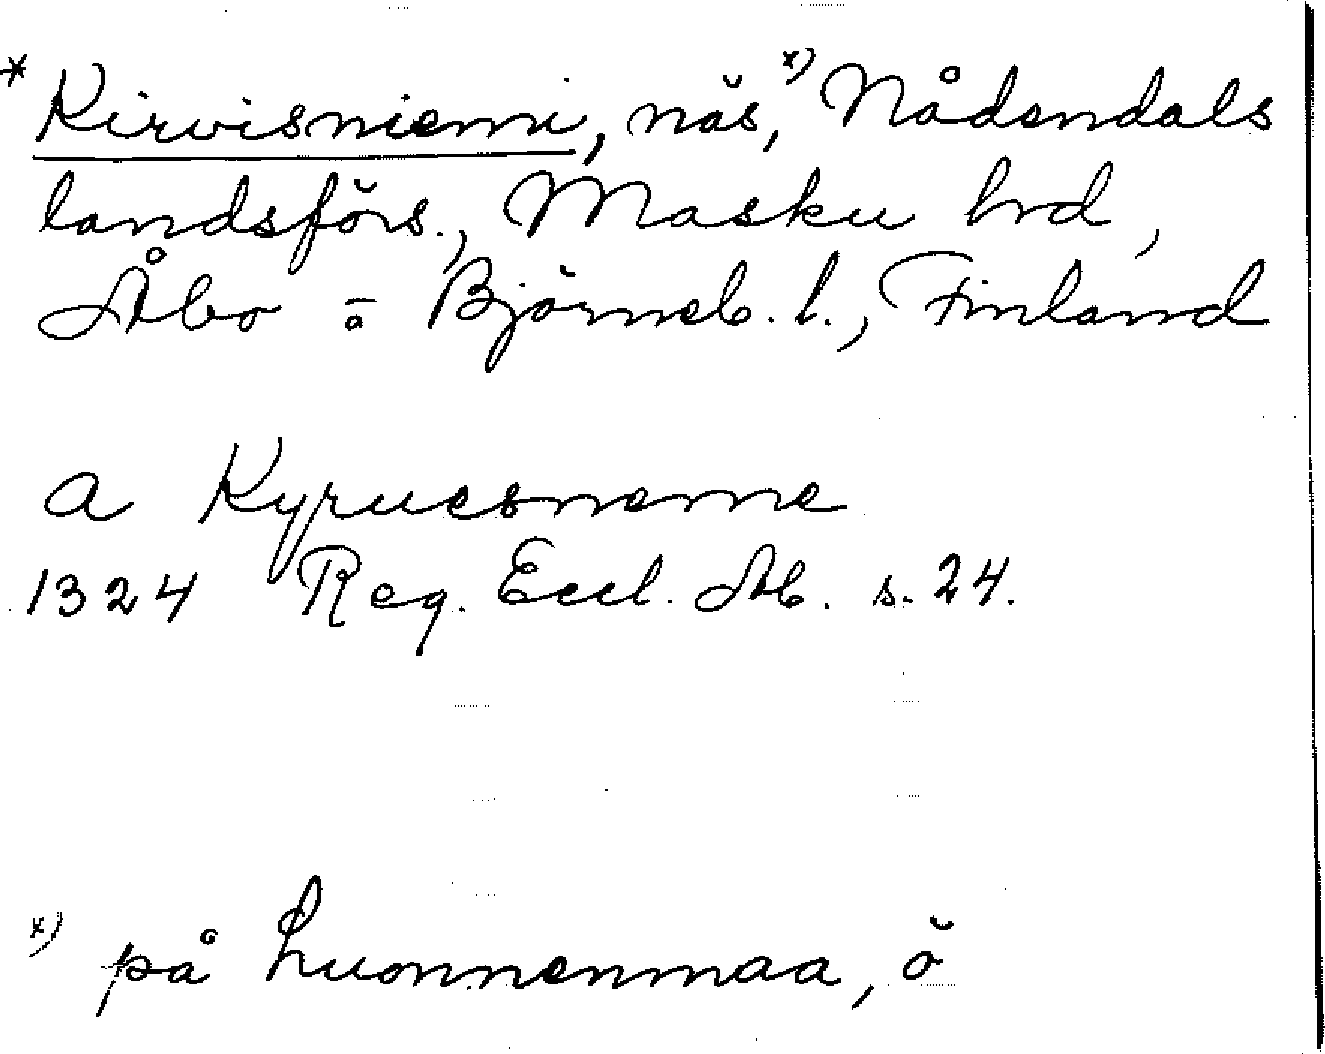 * Kirvisniemi, näs, x) Nådendals
landsförs., Masku hrd,
Åbo = Björneb. l., Finland
a Kyruesneme
1324 Reg. Eccl. Ab. s. 24.
x) på Luonnenmaa, ö